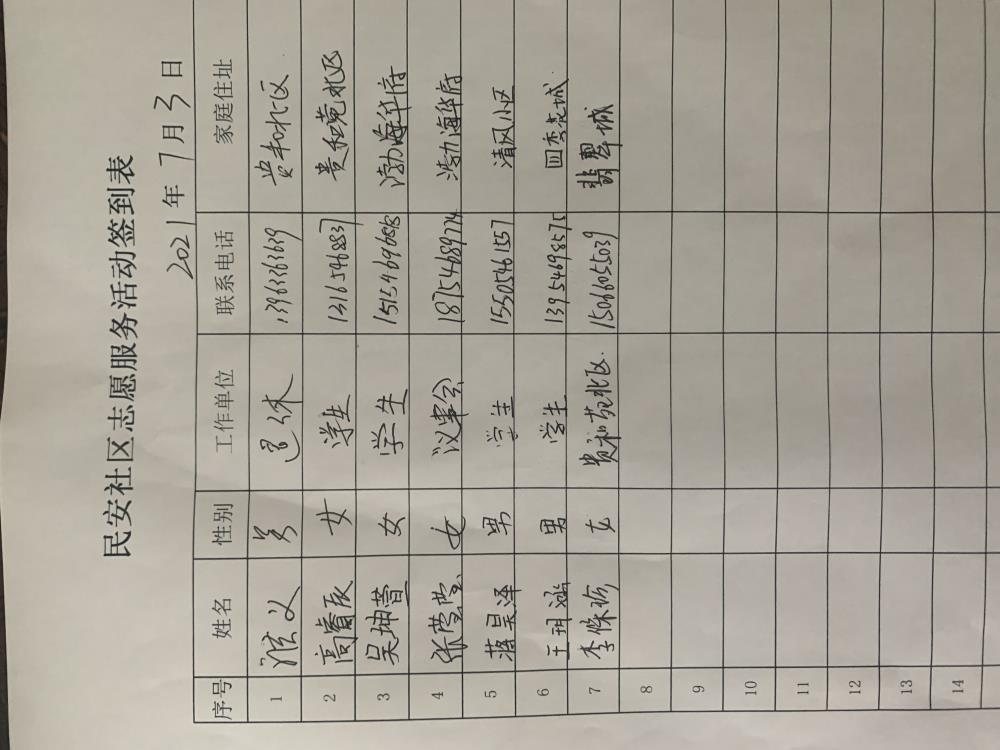 民安社区志愿服务活动签到表
2021年 7月 3日
序号 姓名 性别 工作单位 联系电话 家庭住址
1 义 男 退休 13963363639 贵和北区
2 高睿辰 女 学生 贵和苑北区
3 吴坤萱 女 学生 渤海华府
4 张莹莹 女 议事会 18754689774 渤海华府
5 蒋昊泽 男 学生 15505461557 清风小区
6 王玥涵 男 学生 13954698575 四季花城
7 李 珍 女 贵和苑北区. 15066055039 翡翠城
8
9
10
11
12
13
14